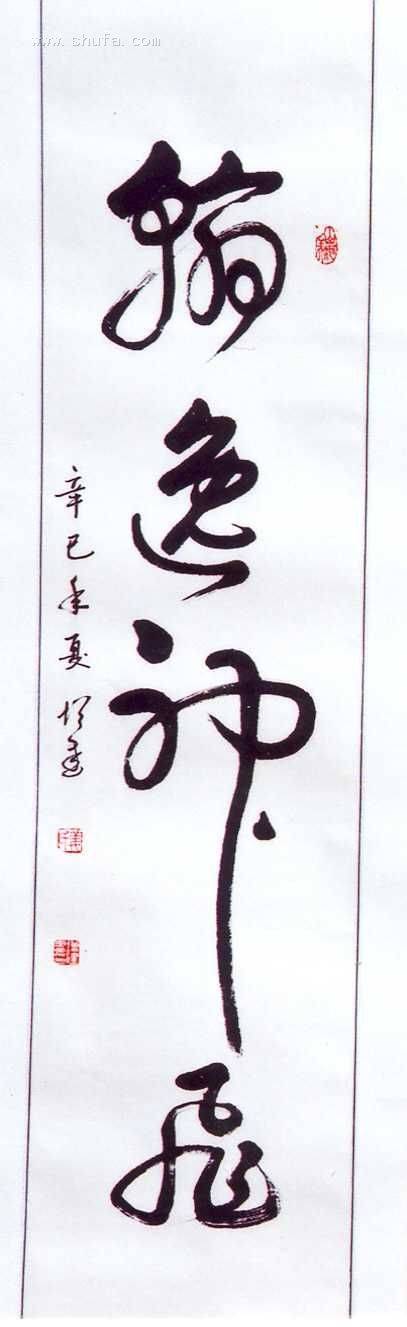 www.shufa.com
翰逸神飞
辛巳年夏